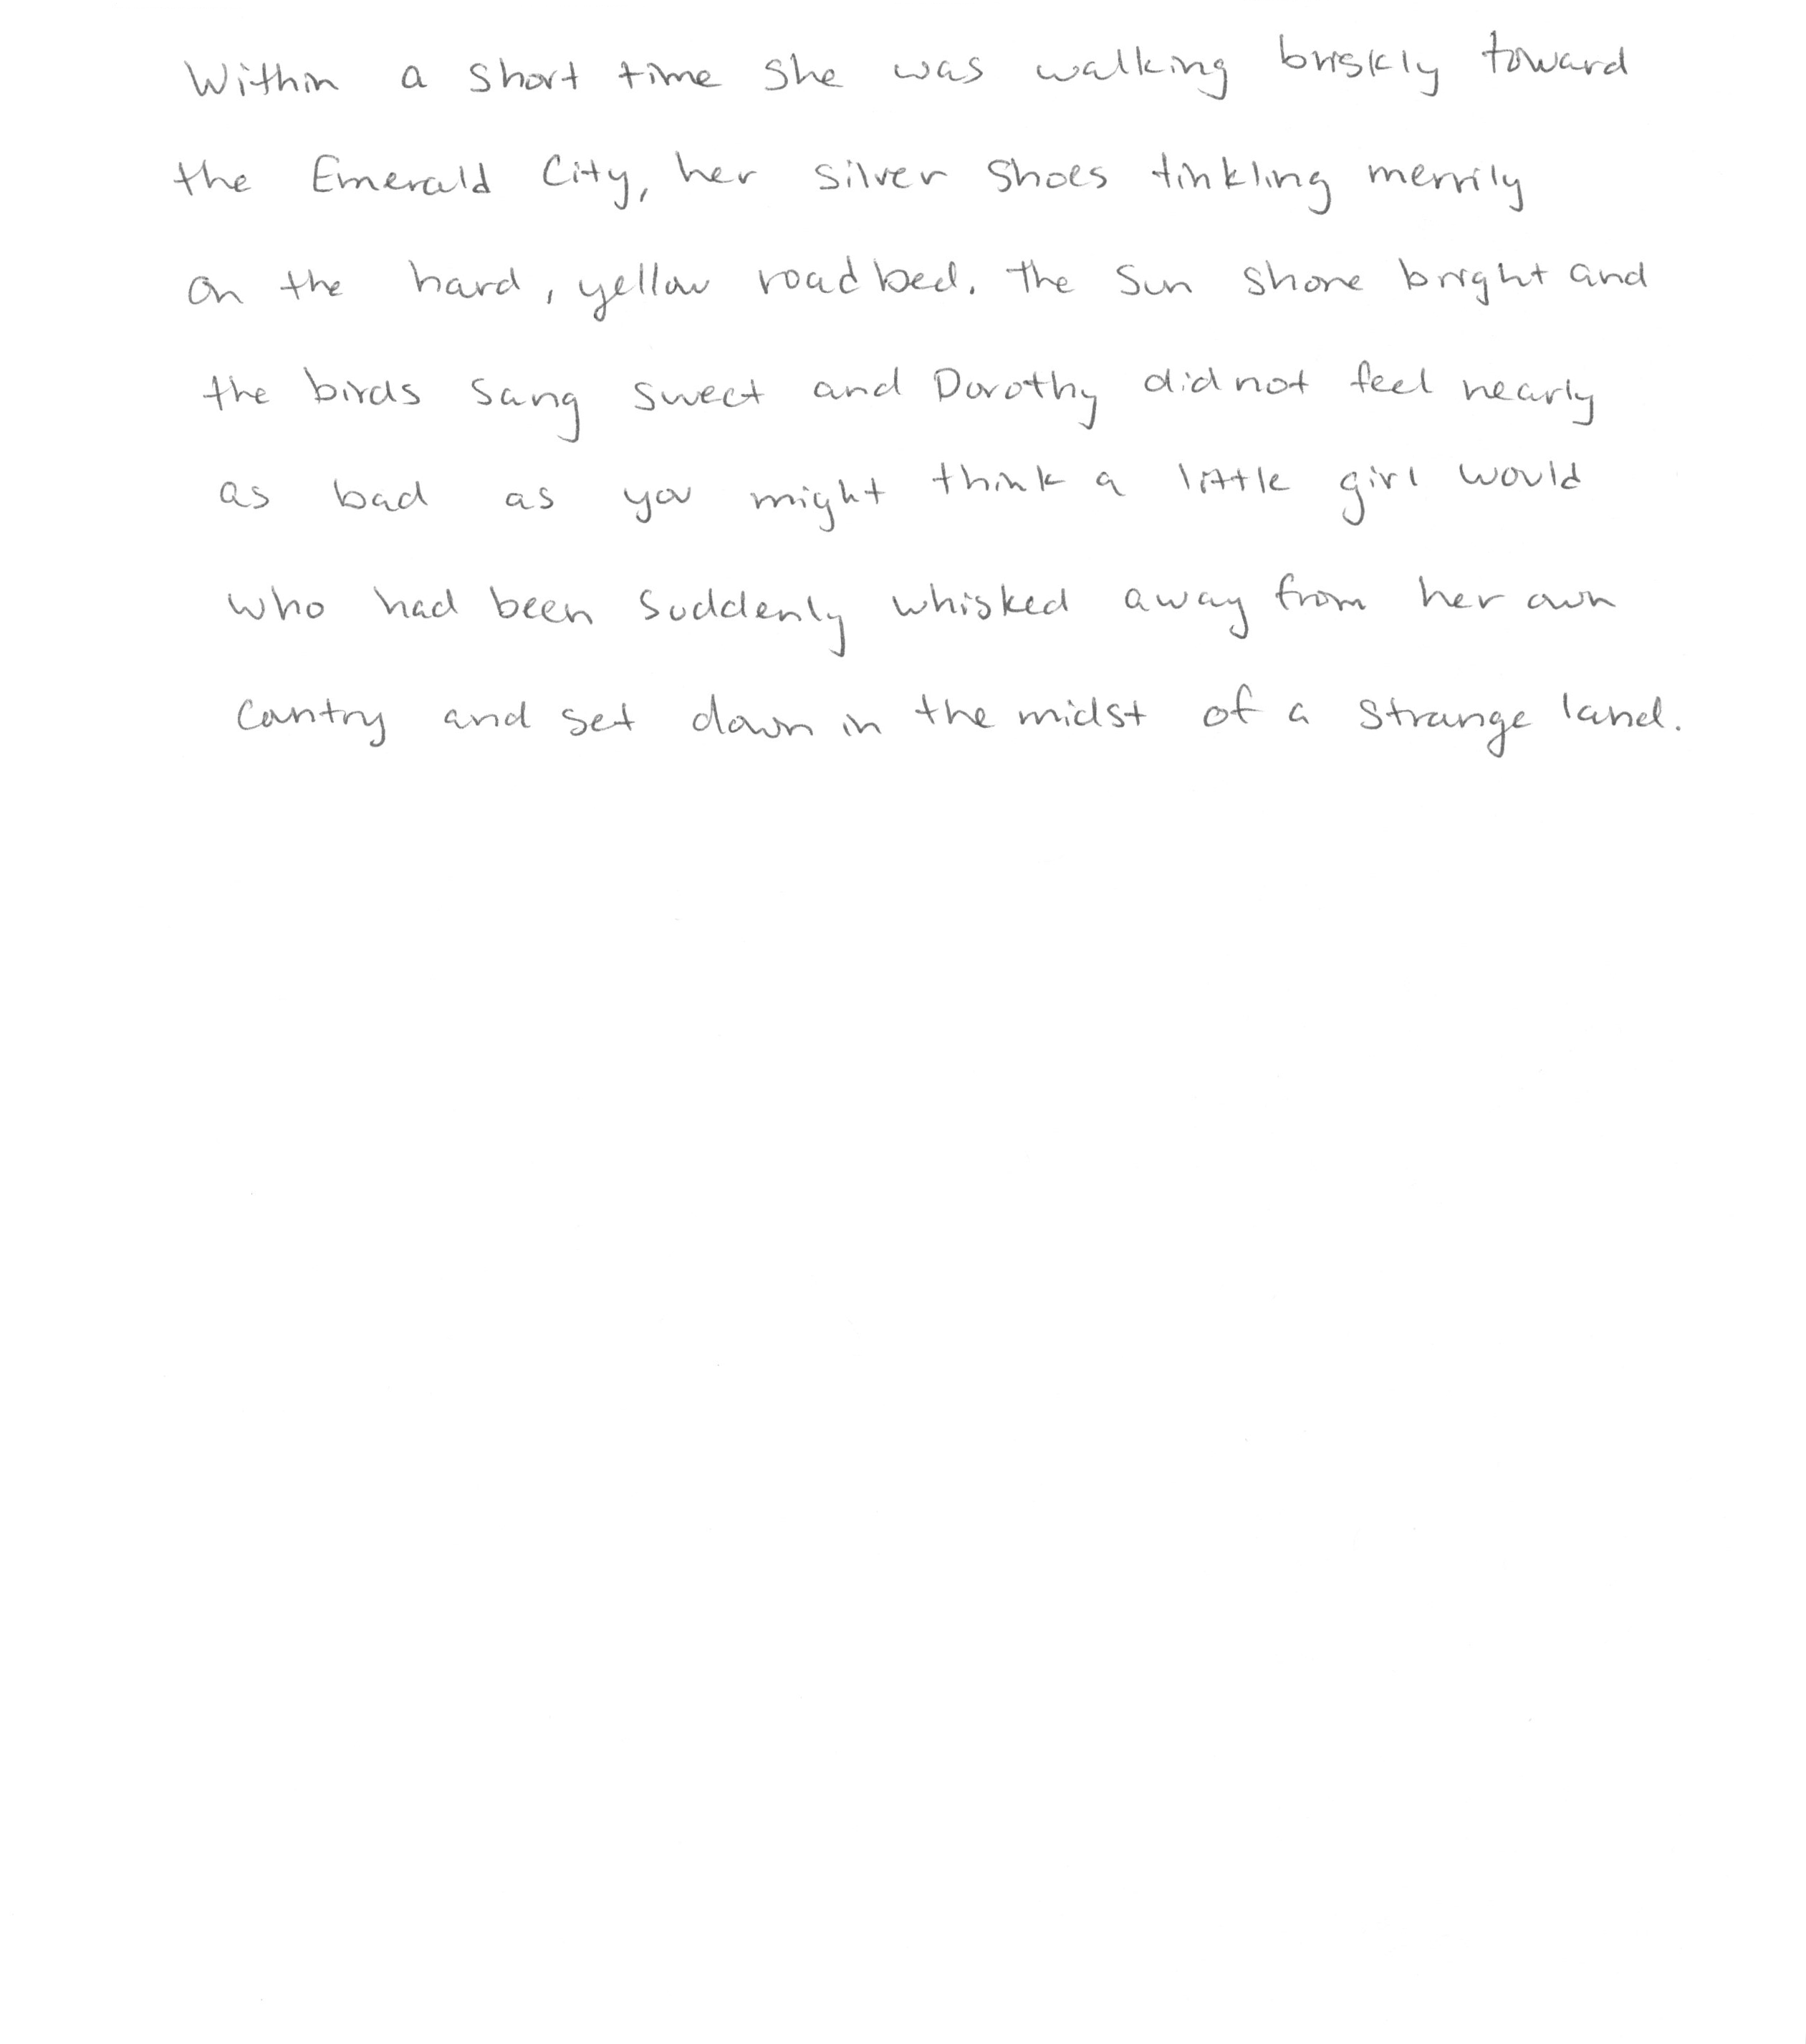 Within a short time she was walking briskly toward
the Emerald City, her silver shoes tinkling merrily
on the hard, yellow roadbed. The sun shone bright and
the birds sang sweet and Dorothy did not feel nearly
as bad as you might think a little girl would
who had been suddenly whisked away from her own
country and set down in the midst of a strange land.